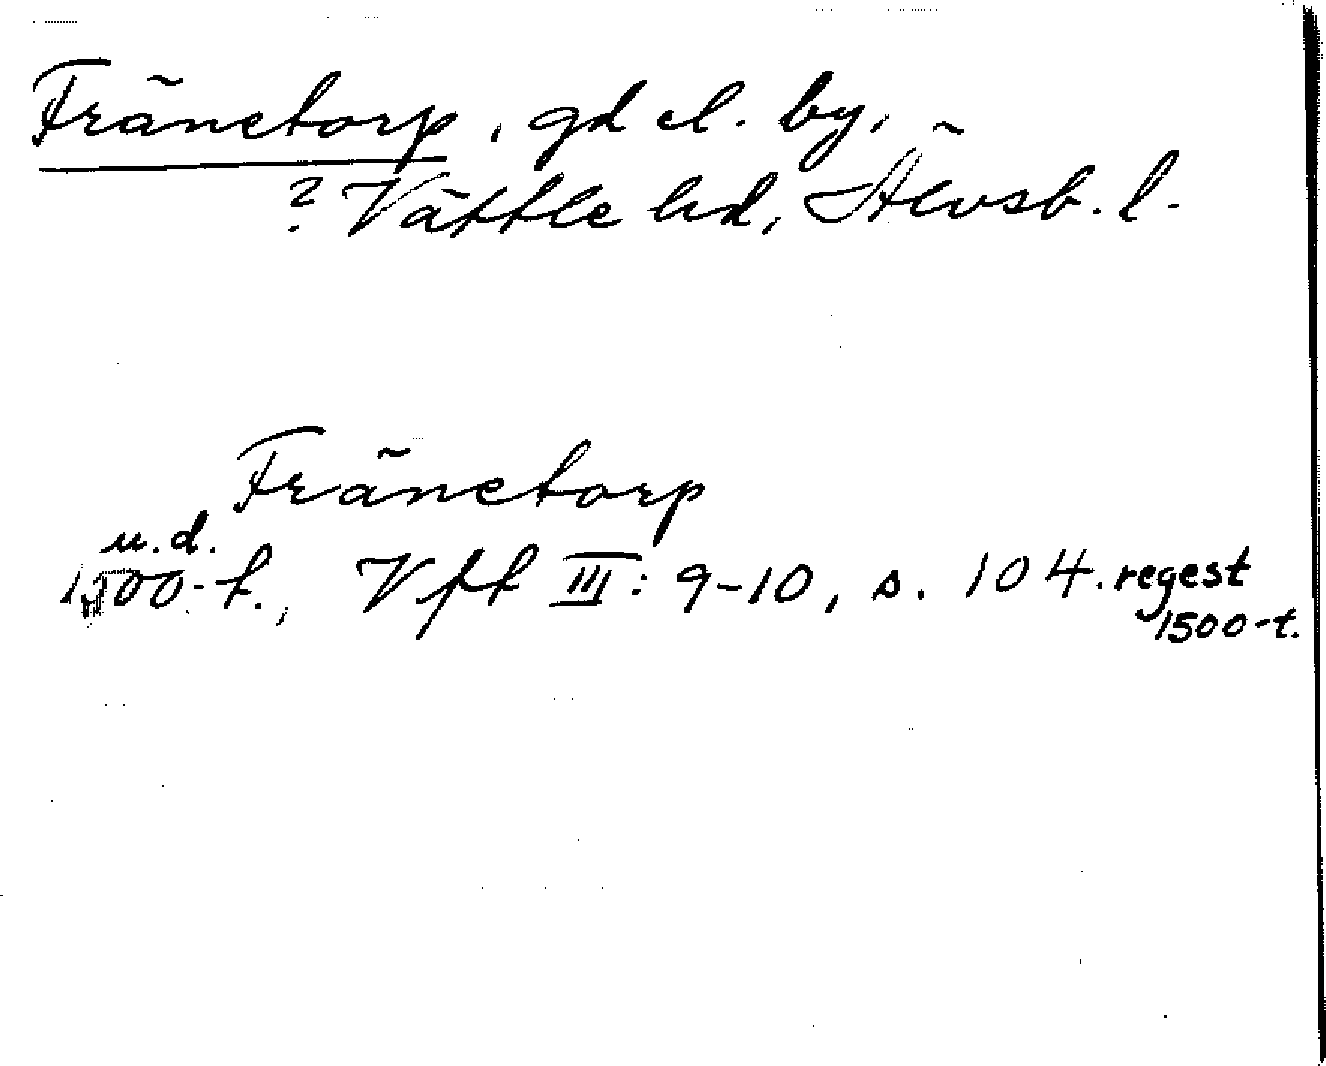 Fränetorp, gd el. by,
? Vättle hd, Älvsb. l.
Fränetorp
u.d.
1500-t., Vft III: 9-10, s. 104. regest
1500-t.